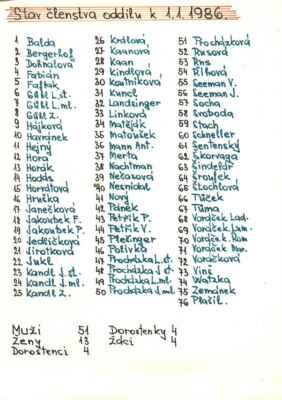 Stav členstva oddílu k 1.1.1986.
1 Balda
2 Bergerhof
3 Dohnalová
4 Fabián
5 Fajtak
6 Göttl L.st.
7 Göttl L.ml.
8 Göttl Z.
9 Hájková
10 Havránek
11 Hejný
12 Hora
13 Horák
14 Hodds
15 Horňátová
16 Hruška
17 Janečková
18 Jakoubek F.
19 Jakoubek P.
20 Jedličková
21 Jirotková
22 Jukl
23 Kandl J.st.
24 Kandl J.ml.
25 Kandl Z.
26 Králová
27 Kaunová
28 Kaan
29 Kindlová
30 Kostníková
31 Kuncl
32 Landsinger
33 Linková
34 Matěják
35 Matoušek
36 Mann Ant.
37 Merta
38 Nachtman
39 Nečasová
40 Nesnídal
41 Nový
42 Paleček
43 Petřík P.
44 Petřík V.
45 Pleßinger
46 Polívka
47 Procházka L.st.
48 Procházka J.st.
49 Procházka L.ml.
50 Procházka J.ml.
51 Procházková
52 Rusová
53 Rus
54 Říhová
55 Seeman V.
56 Seeman J.
57 Socha
58 Svoboda
59 Stach
60 Schneller
61 Šenfenský
62 Škorvaga
63 Šindelář
64 Šroufek
65 Štochlová
66 Tůček
67 Tůma
68 Voráček Lad.
69 Voráček Lum.
70 Voráček Rom.
71 Voráček ml.
72 Voráčková
73 Vinš
74 Watzka
75 Zemánek
76 Plašil.
Muži 51
Ženy 13
Dorostenci 4
Dorostenky 4
Žáci 4